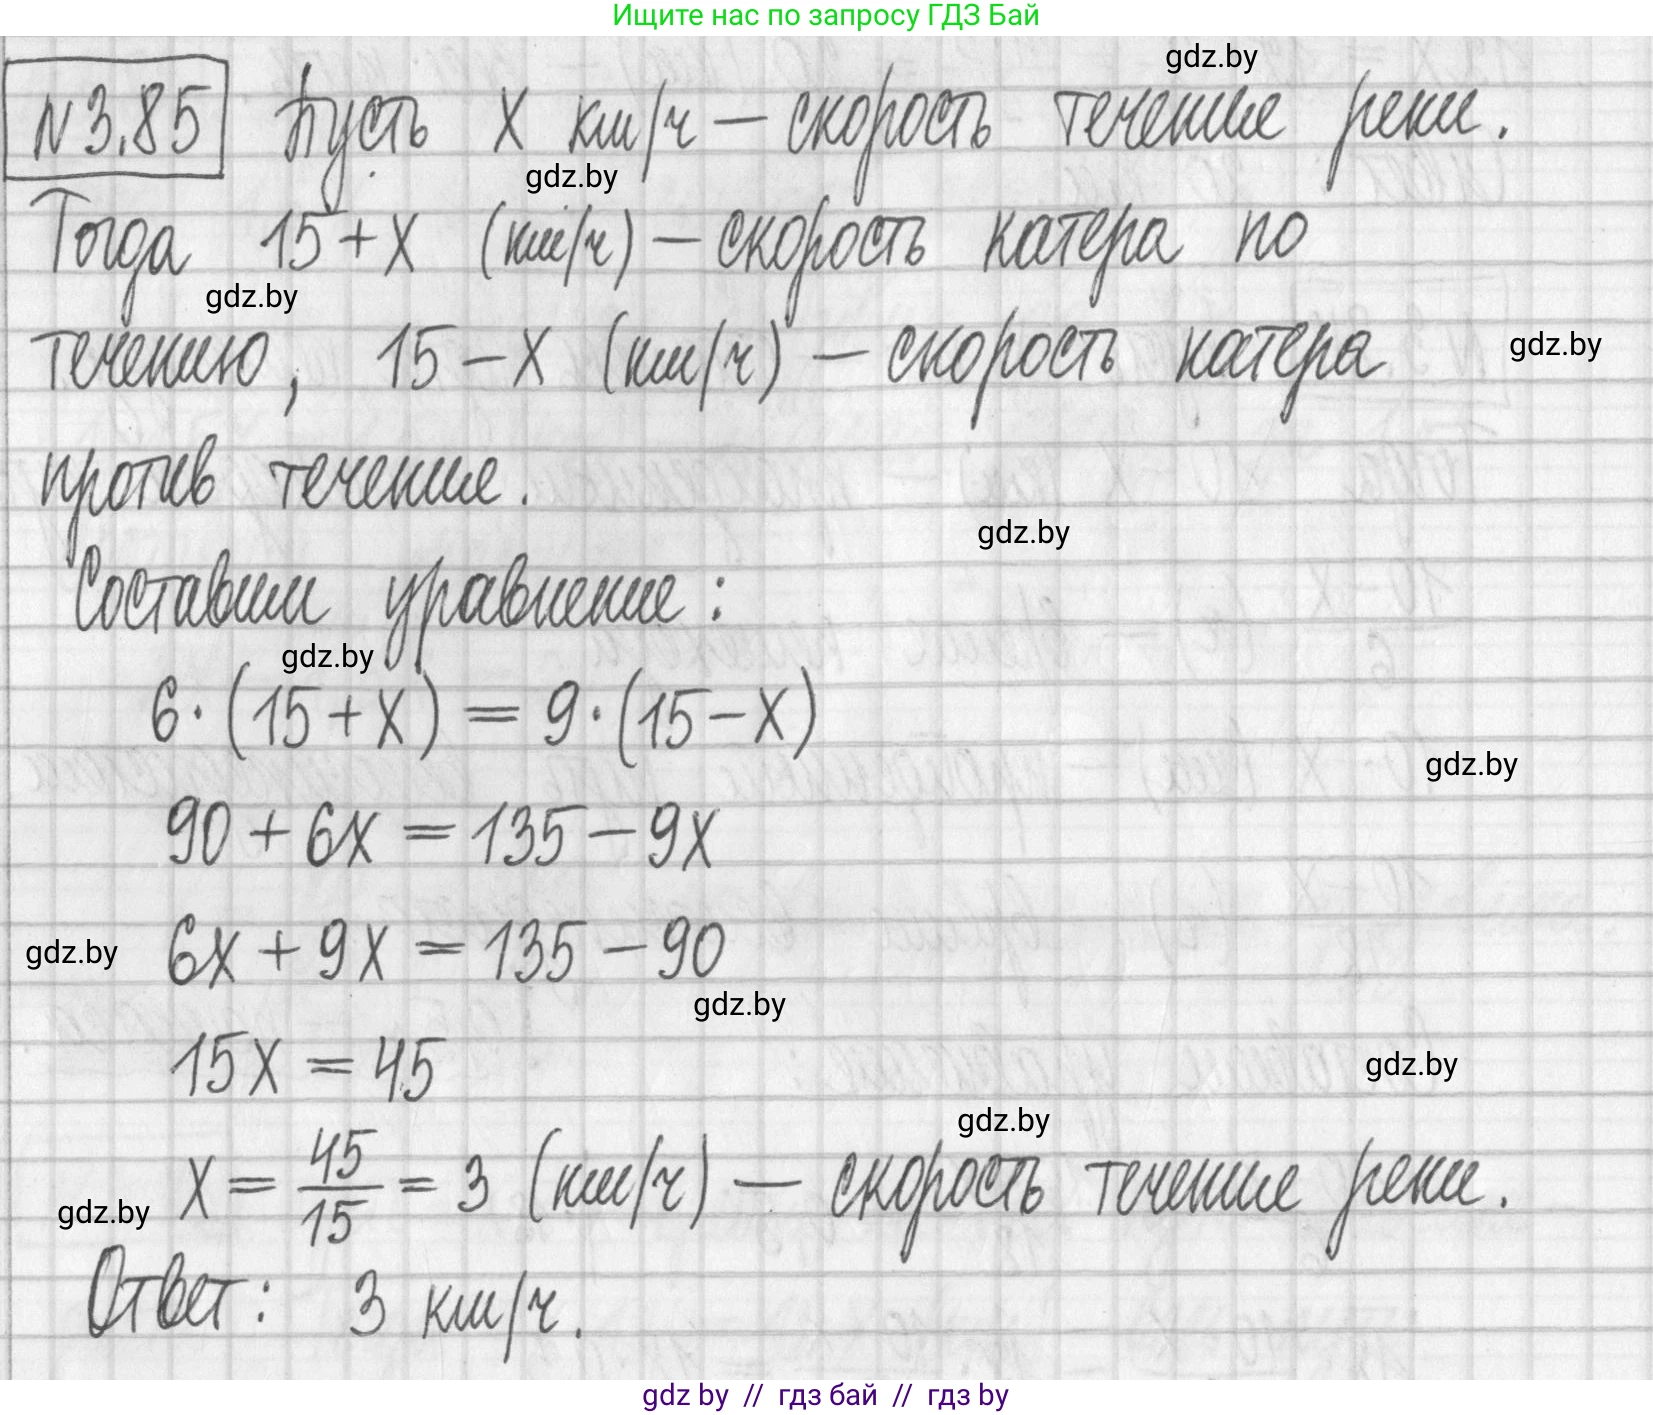 Ищите нас по запросу ГДЗ Бай
gdz.by
№3.85 Пусть x км/ч — скорость течение реки.
gdz.by
Тогда 15+x (км/ч) — скорость катера по
gdz.by
течению, 15-x (км/ч) — скорость катера
gdz.by
против течение.
gdz.by
Составим уравнение:
gdz.by
6·(15+x) = 9·(15-x)
gdz.by
90+6x = 135-9x
6x+9x = 135-90
gdz.by
gdz.by
15x = 45
gdz.by
gdz.by
x = 45/15 = 3 (км/ч) — скорость течение реки.
gdz.by
Ответ: 3 км/ч.
gdz by // гдз бай // гдз by